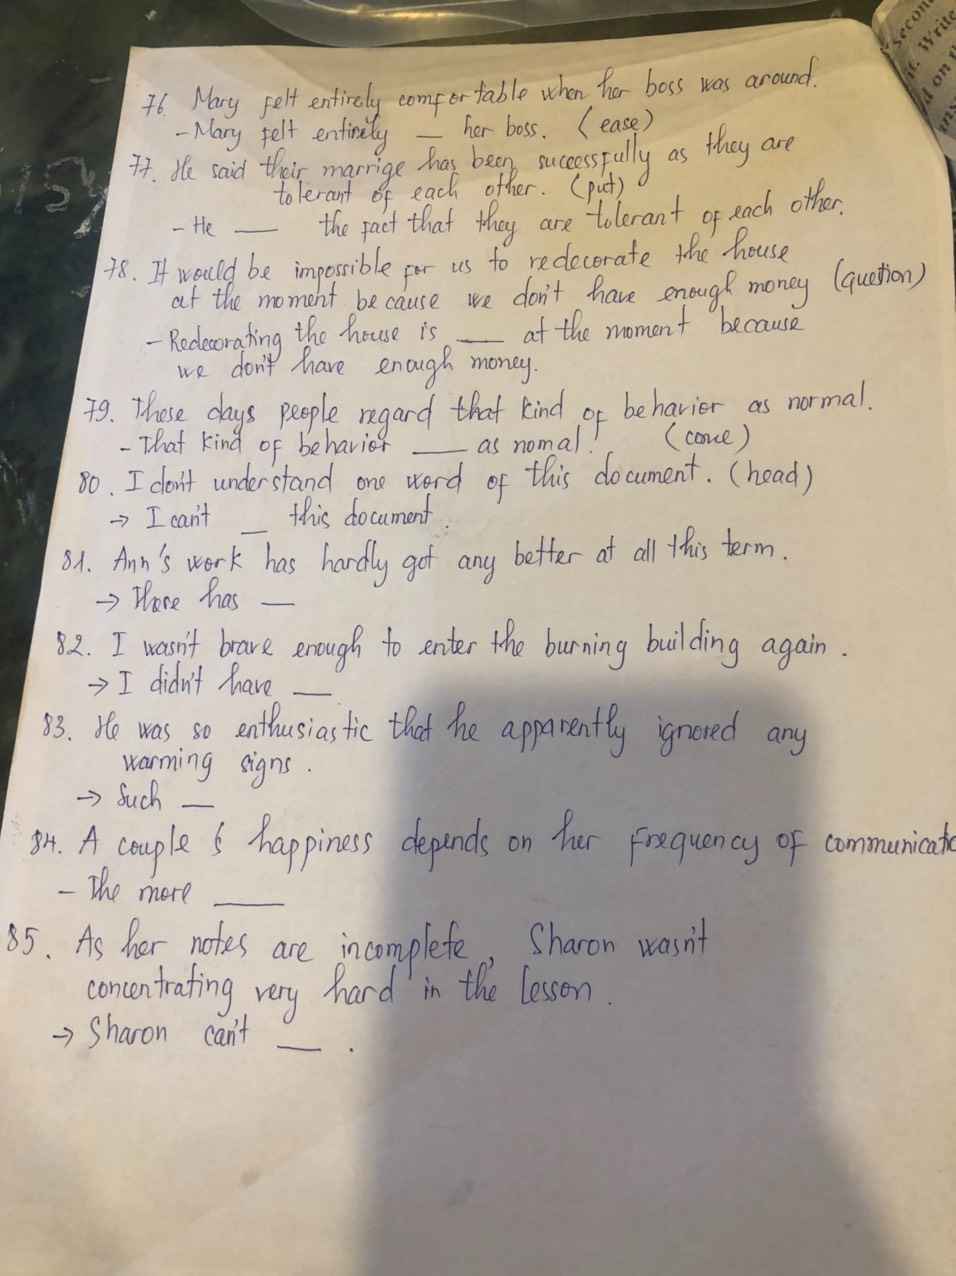 76. Mary felt entirely comfortable when her boss was around.
- Mary felt entirely __ her boss. (ease)
77. He said their marrige has been successfully as they are
tolerant of each other. (put)
- He __ the fact that they are tolerant of each other.
78. It would be impossible for us to redecorate the house
at the moment because we don't have enough money (question)
- Redecorating the house is __ at the moment because
we don't have enough money.
79. These days people regard that kind of behavior as normal.
- That kind of behavior __ as nomal! (come)
80. I don't understand one word of this document. (head)
→ I can't __ this document.
81. Ann's work has hardly got any better at all this term.
→ There has __
82. I wasn't brave enough to enter the burning building again.
→ I didn't have __
83. He was so enthusiastic that he apparently ignored any
warming signs.
→ Such __
84. A couple's happiness depends on her frequency of communicatio
- The more __
85. As her notes are incomplete, Sharon wasn't
concentrating very hard in the lesson.
→ Sharon can't __.
Secon
it. Write
d on